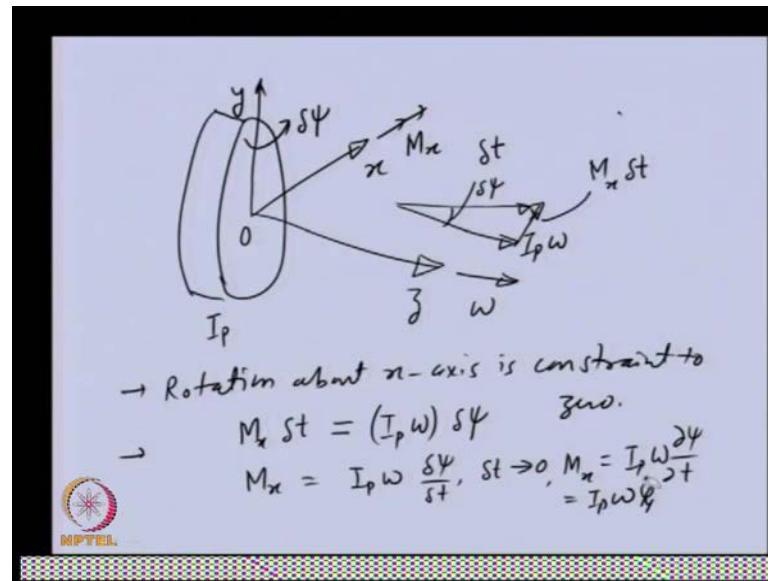 y
δψ
x
Mx
δt
δψ
Mx δt
O
Ipω
Ip
z
ω
→ Rotation about x-axis is constraint to
zero.
→ Mx δt = (Ipω) δψ
Mx = Ipω δψ/δt, δt → 0, Mx = Ipω ∂ψ/∂t
= Ipω
NPTEL